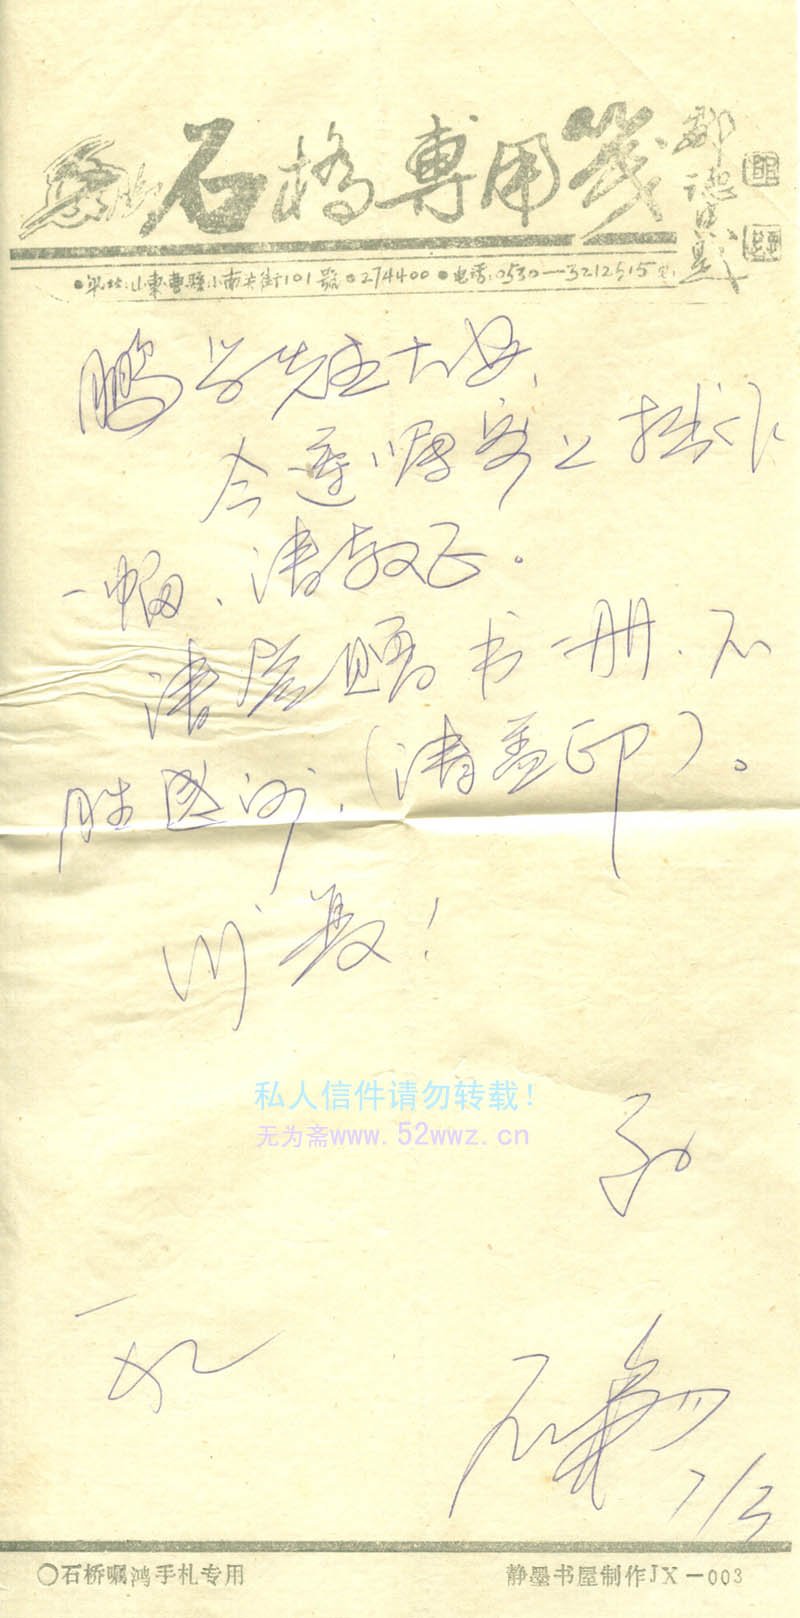 石橋專用箋
地址:山東曹縣小南关街101號●274400●电话:0530—3212515
鹏 先生大安、
今遵嘱寄上拙作
一幅、请教正。
请 赐书一册、不
胜感谢、(请盖印)。
!
私人信件请勿转载!
无为斋www.52wwz.cn
孙
石
7/3
〇石桥嘱鸿手札专用
静墨书屋制作JX－003